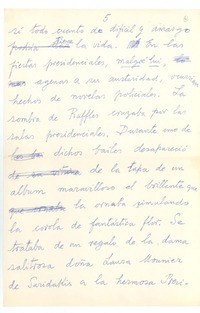 5
sí todo cuanto de difícil y amargo
podría tiene la vida. En las
fiestas presidenciales, malgré lui,
agenas a su austeridad,
hechos de novelas policiales. La
sombra de Raffles cruzaba por las
salas presidenciales. Durante uno de
dichos bailes desapareció
de la tapa de un
album maravilloso el brillante que
la ornaba simulando
la corola de fantástica flor. Se
trataba de un regalo de la dama
salitrosa doña Laura Mounier
de Saridakis a la hermosa Presi-